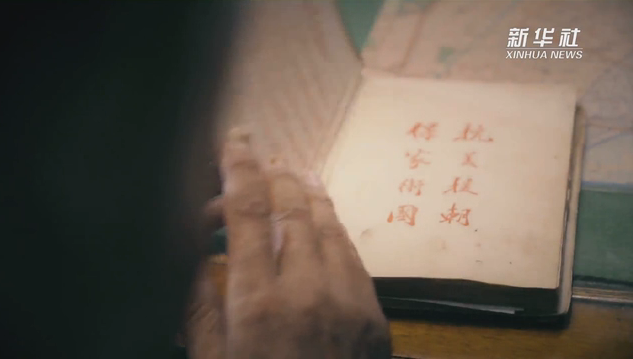 新华社
XINHUA NEWS
抗美援朝
保家衛國